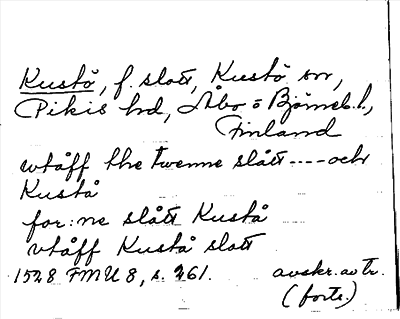 Kustö, f. slott, Kustö sn,
Pikis hd, Åbo o Björneb. l.,
Finland
vtåff the twenne slått----och
Kustå
for:ne slått Kustå
vtåff Kustå slott
1528 FMU 8, s. 261. avskr. av tr.
(forts.)